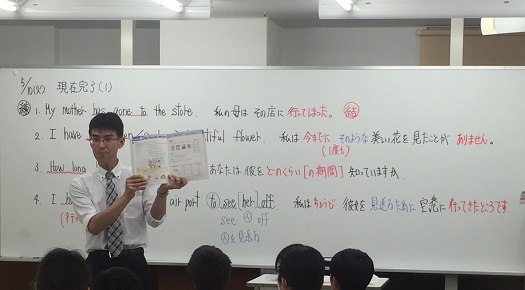 5/10(火) 現在完了(1)
練 1. My mother has gone to the store. 私の母は その店に 行ってしまった。 結
2. I have flower. 私は 今までに そのような 美しい花を 見たことが ありません。
(1度も)
3. How long あなたは 彼を どのくらい[の期間] 知っていますか
4. I airport to see [her] off 私は ちょうど 彼女を 見送るために 空港に 行ってきたところです。
see Ⓐ off
Ⓐを見送る